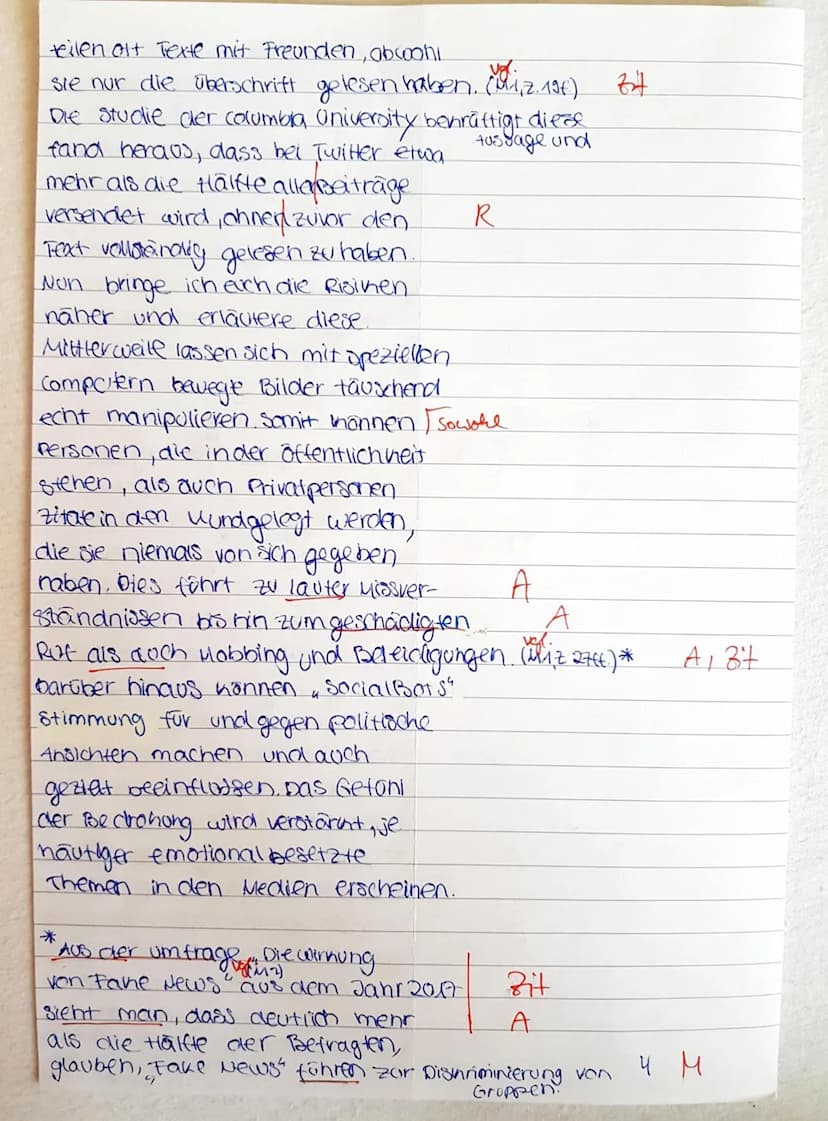 teilen oft Texte mit Freunden, obwohl
sie nur die Überschrift gelesen haben. (vgl. M1, Z. 19f) Zit
Die Studie der Columbia University bekräftigt diese
Aussage und
fand heraus, dass bei Twitter etwa
mehr als die Hälfte aller Beiträge
versendet wird, ohne zuvor den R
Text vollständig gelesen zu haben.
Nun bringe ich euch die Risiken
näher und erläutere diese.
Mittlerweile lassen sich mit speziellen
Computern bewegte Bilder täuschend
echt manipulieren. Somit können sowohl
Personen, die in der Öffentlichkeit
stehen, als auch Privatpersonen
Zitate in den Mund gelegt werden,
die sie niemals von sich gegeben
haben. Dies führt zu lauter Missver- A
ständnissen bis hin zum geschädigten A
Ruf als auch Mobbing und Beleidigungen. (vgl. M1, Z 27ff.)* A, Zit
Darüber hinaus können „Social Bots"
Stimmung für und gegen politische
Ansichten machen und auch
gezielt beeinflussen. Das Gefühl
der Bedrohung wird verstärkt, je
häufiger emotional besetzte
Themen in den Medien erscheinen.
* Aus der Umfrage „Die Wirkung
von Fake News" (vgl. M2) aus dem Jahr 2017 Zit
sieht man, dass deutlich mehr A
als die Hälfte der Befragten,
glauben, „Fake News" führen zur Diskriminierung von 4 M
Gruppen.